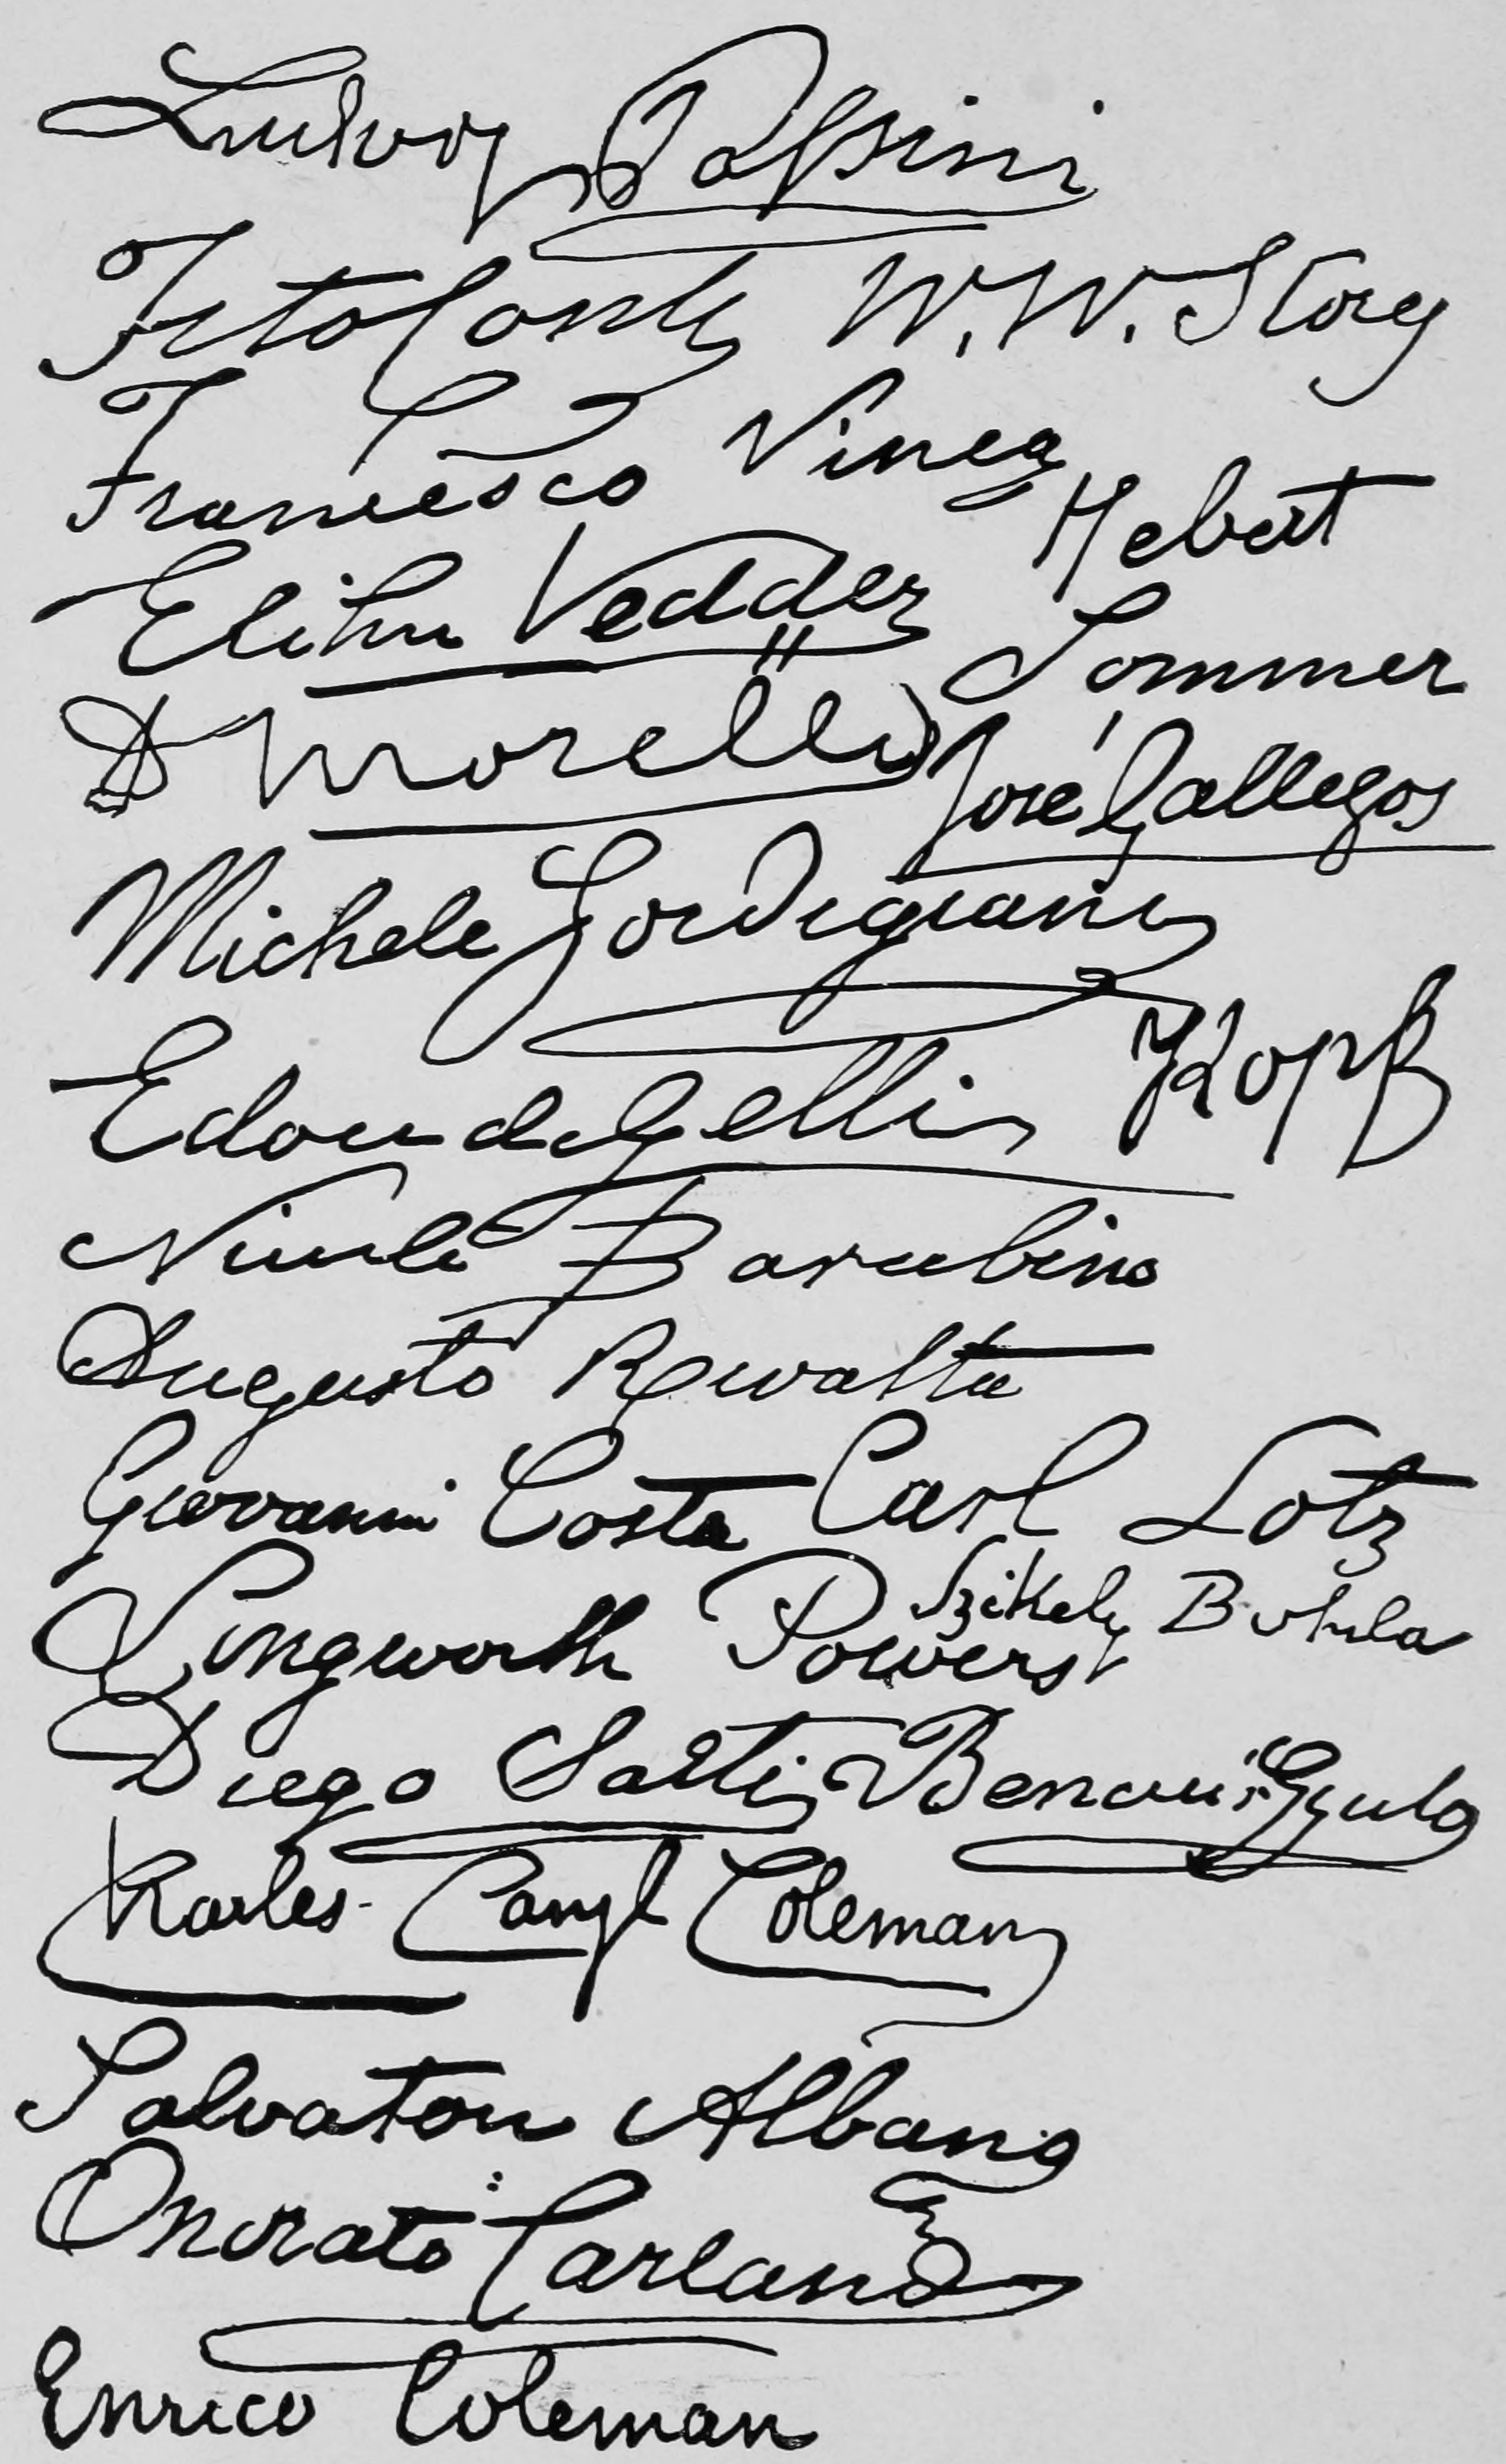 Ludwig Passini
Tito Conti W. W. Story
Francesco Vinea
Hebert
Elihu Vedder
Sommer
D Morelli
José Gallegos
Michele Gordigiani
Kopf
Edoardo Gelli
Nicolò Barabino
Augusto Rivalta
Giovanni Costa Carl Lotz
Székely Bertalan
Longworth Powers
Diego Sarti Benczúr Gyula
Charles Caryl Coleman
Salvatore Albano
Onorato Carlandi
Enrico Coleman